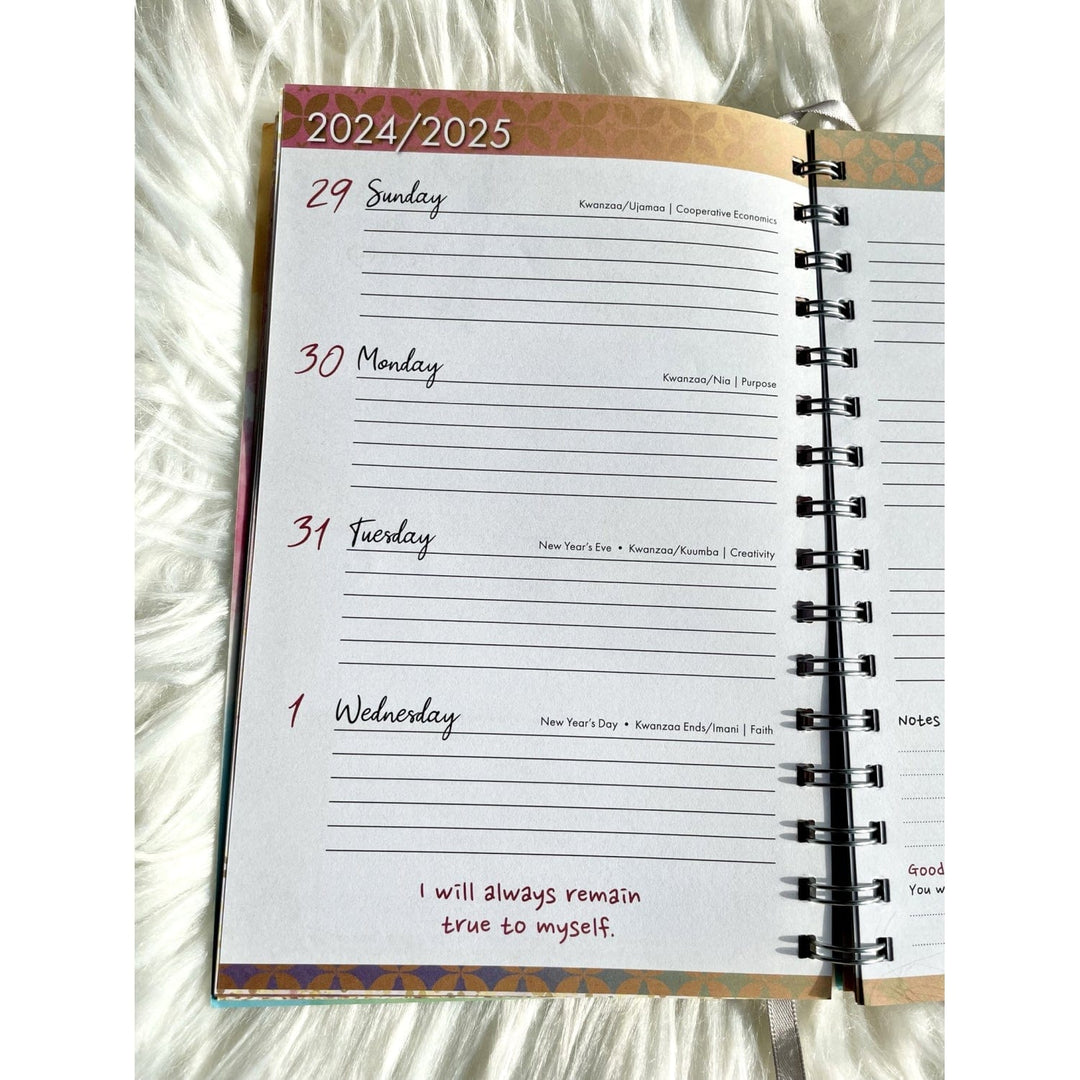 2024/2025
29 Sunday Kwanzaa/Ujamaa | Cooperative Economics
30 Monday Kwanzaa/Nia | Purpose
31 Tuesday New Year's Eve • Kwanzaa/Kuumba | Creativity
1 Wednesday New Year's Day • Kwanzaa Ends/Imani | Faith
I will always remain
true to myself.
Notes
Good
You w